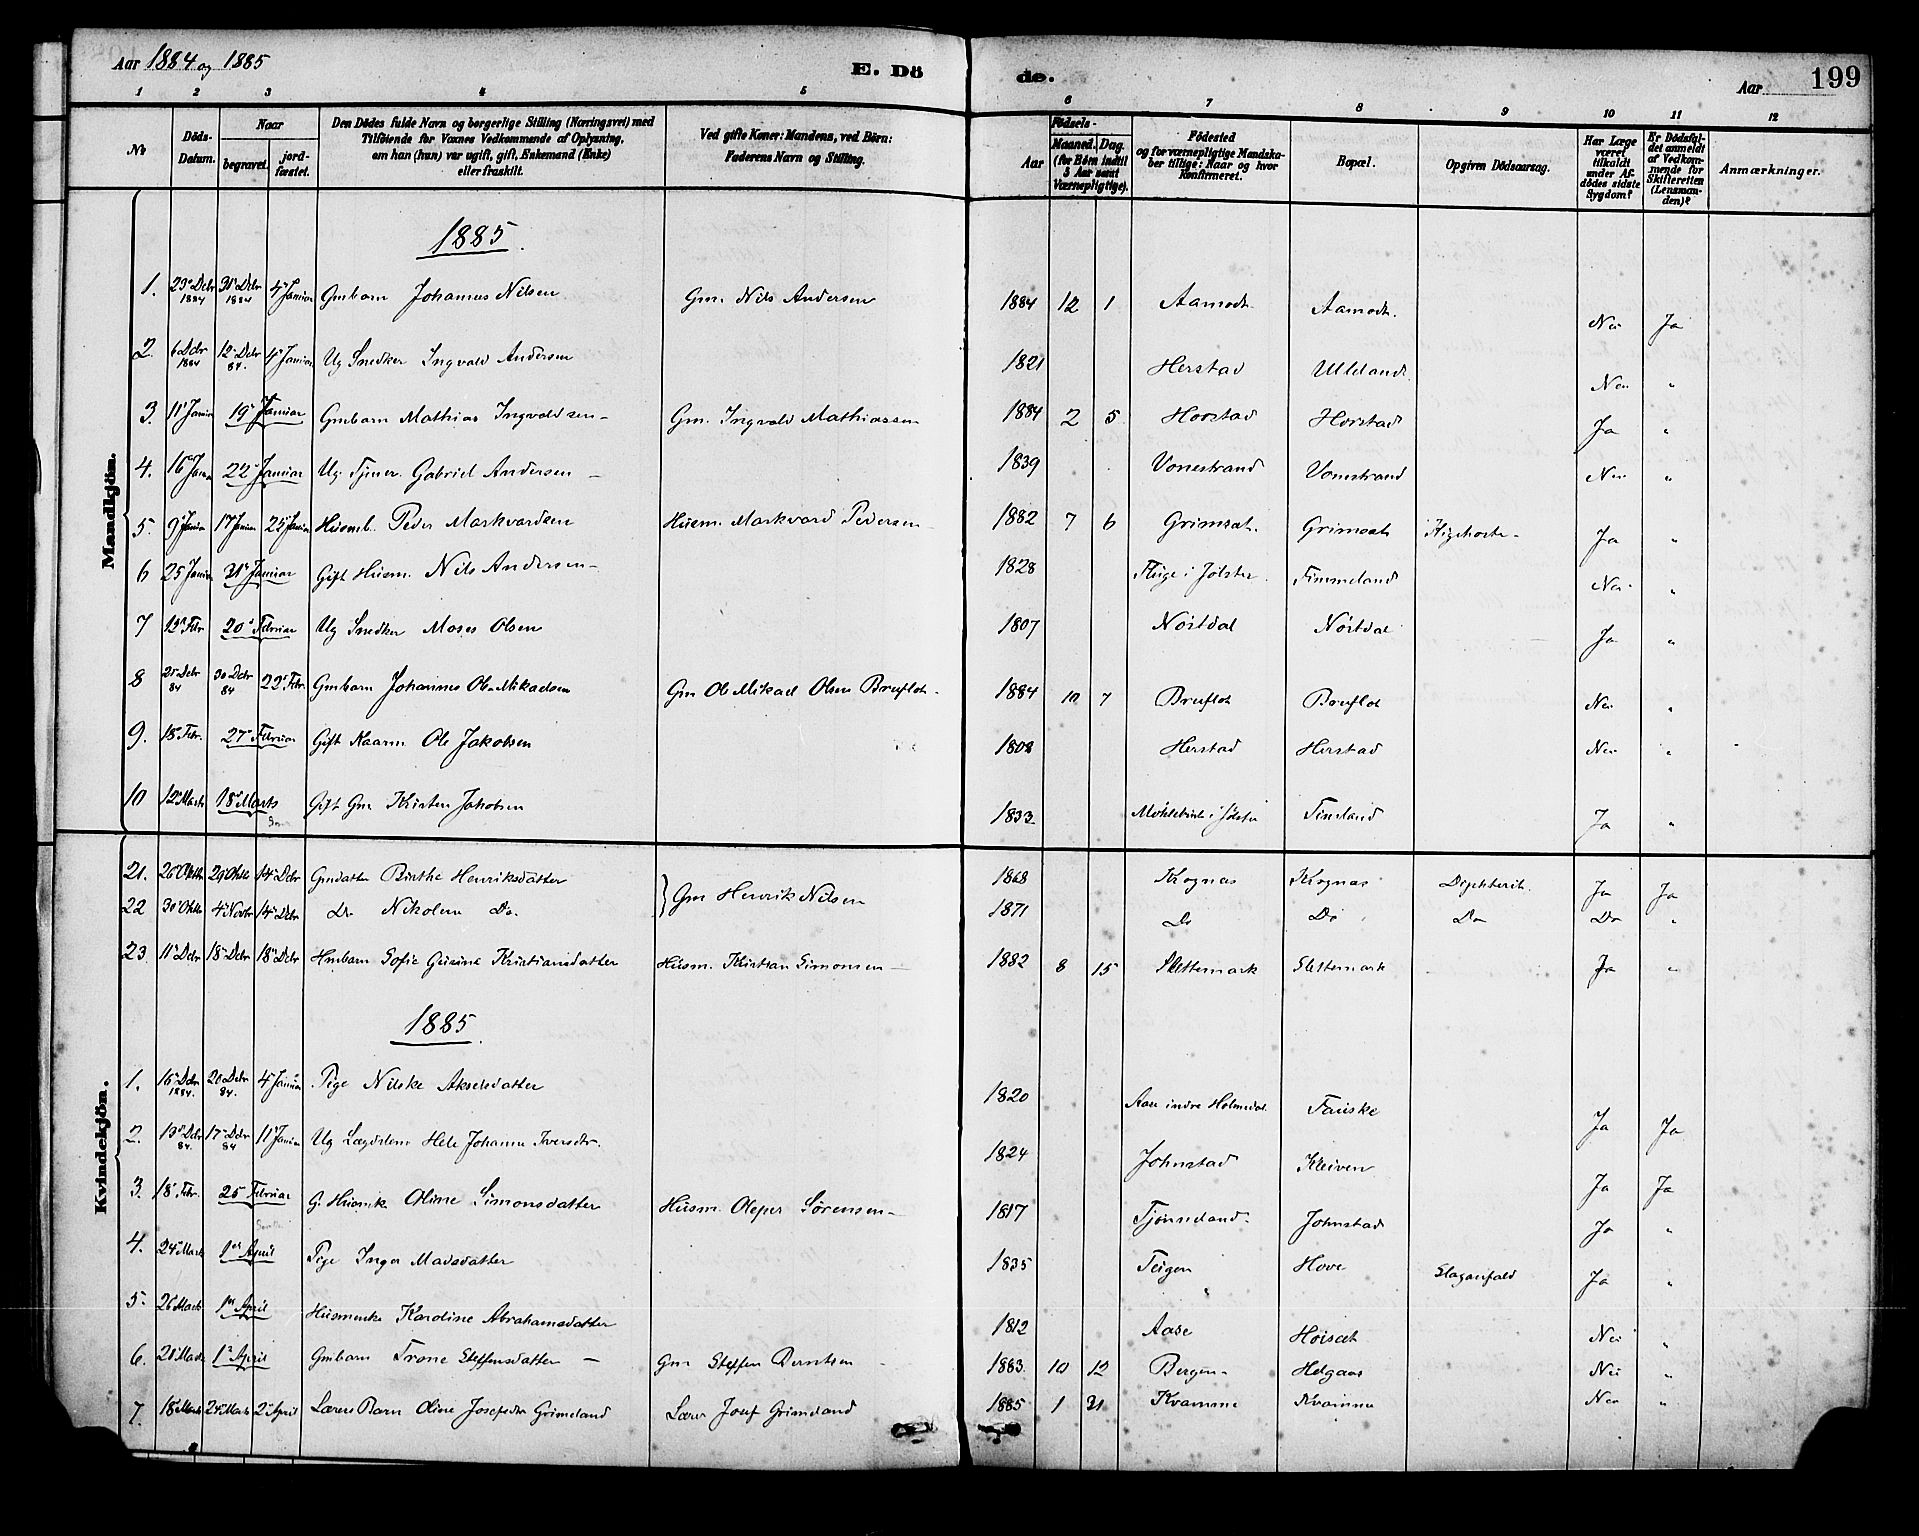 Aar 1884 og 1885
E. Dö
de.
Aar
199
1 2 3 4 5 6 7 8 9 10 11 12
№ Döds-Datum. Naar begravet. jord-fæstet. Den Dödes fulde Navn og borgerlige Stilling (Næringsvei) med Tilföiende for Voxnes Vedkommende af Oplysning, om han (hun) var ugift, gift, Enkemand (Enke) eller fraskilt. Ved gifte Koner: Mandens, ved Börn: Faderens Navn og Stilling. Födsels- Aar Maaned. Dag. (for Börn indtil 5 Aar samt Værnepligtige). Födested og for værnepligtige Mandskaber tillige: Naar og hvor Konfirmeret. Bopæl. Opgiven Dödsaarsag. Har Læge været tilkaldt under Afdödes sidste Sygdom? Er Dödsfaldet anmeldt af Vedkommende for Skifteretten (Lensmanden)? Anmærkninger.
Mandkjön.
1885.
1. 23 Debr 1884 31 Debr 1884 4 Januar Gmbarn Johannes Nilsen Gm. Nils Andersen 1884 12 1 Aamodt. Aamodt. Nei Ja
2. 6 Debr 1884 12 Debr 84. 4 Januar Ug Snedker Ingvald Andersen 1821 Herstad Ulleland. Nei "
3. 11 Januar 19 Januar Gmbarn Mathias Ingvaldsen – Gm. Ingvald Mathiassen 1884 2 5 Horstad Horstad Ja "
4. 16 Janr 22 Januar Ug Tjener. Gabriel Andersen – 1839 Vonestrand Vonestrand Nei "
5. 9 Januar 17 Januar 25 Januar Husmb. Peder Markvardsen Husm. Markvard Pedersen – 1882 7 6 Grimsæt. Grimsæt Kighoste – Ja "
6 25 Januar 31 Januar Gift Husm. Nils Andersen – 1828 Fluge i Jølster. Timmeland Nei "
7 12 Febr. 20 Februar Ug Snedker Moses Olsen 1807 Nøstdal Nøstdal Ja "
8 25 Debr 84 30 Debr 84 22 Febr. Gmbarn Johannes Ole Mikalsen Gm Ole Mikal Olsen Bruflot. 1884 10 7 Bruflot Bruflot Nei "
9. 18 Febr. 27 Februar Gift Kaarm Ole Jakobsen 1808 Herstad Herstad Nei "
10 12 Marts 18 Marts Gift Gm Kristen Jakobsen 1833 i Jølster Timeland Ja "
Kvindekjön.
21. 26 Oktbr 29 Oktbr 14 Debr Gmdatter Birthe Henriksdatter Gm Henrik Nilsen 1868 Krognæs Krognæs Difhterit. Ja Ja
22 30 Oktbr 4 Novbr 14 Debr Do Nikoline Do. 1871 Do Do Do Do "
23. 11 Debr 18 Debr 18 Debr Hmbarn Sofie Gurine Kristiansdatter Husm. Kristian Simonsen – 1882 8 15 Slettemark Slettemark Ja "
1885.
1. 16 Debr 1884. 20 Debr 84. 4 Januar Pige Nilske Akselsdatter 1820 Aase indre Holmedal. Fauske Ja Ja
2. 13 Debr 84. 17 Debr 84 11 Januar Ug Lægdslem Hele Johanne Iversdtr. 1824 Johnstad Kleiven Ja Ja
3. 18 Febr. 25 Februar G. Husmk Oline Simonsdatter Husm. Oleper Sørensen – 1817 Tjønneland. Johnstad Ja "
4. 24 Marts 1ste April Pige Inger Madsdatter 1835 Teigen Hove Slaganfald Ja "
5. 26 Marts 1ste April Husmenke Karoline Abrahamsdatter 1812 Aase Høisæt Nei "
6. 20 Marts 1ste April Gmbarn Trone Steffensdatter – Gm Steffen Berntsen – 1883. 10 12 Bergen – Helgaas Nei "
7. 18 Marts 24 Marts 2 April Lærers Barn Oline Josefsdtr Grimeland Lærer Josef Grimeland 1885 1 31 Kvamme Kvamme Nei "